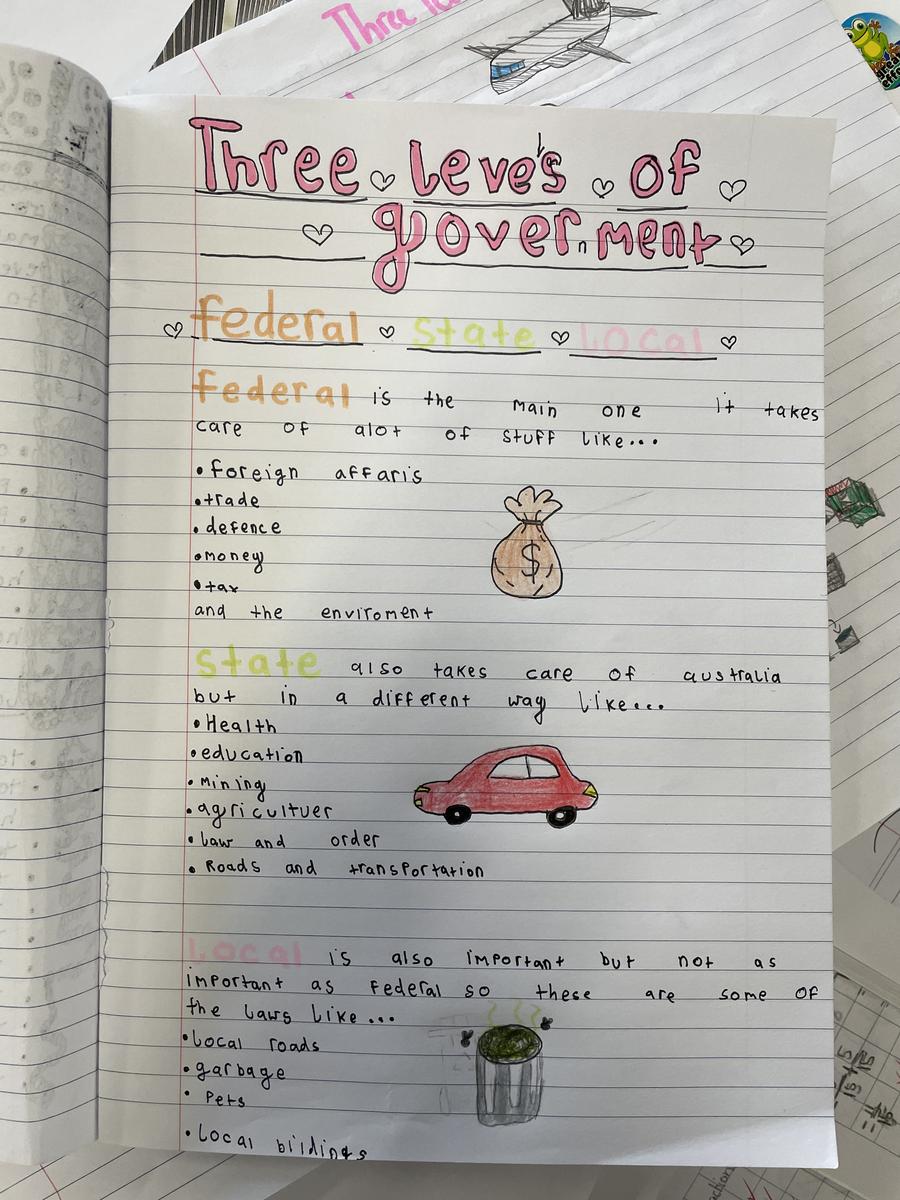 Three
Three Leve's of
government
federal state Local
federal is the main one it takes
care of alot of stuff like...
• foreign affaris
• trade
• defence
• money
• tax
and the enviroment
$
state also takes care of australia
but in a different way like...
• Health
• education
• Mining
• agricultuer
• law and order
• Roads and transportation
Local is also important but not as
important as Federal so these are some of
the laws like...
• Local roads
• garbage
• Pets
• Local bildings